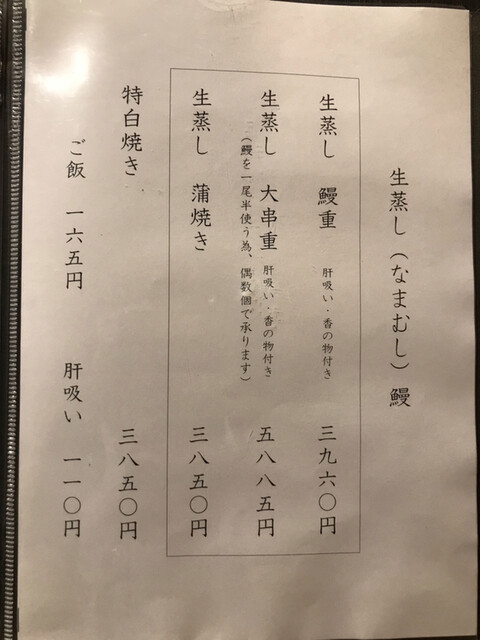 生蒸し（なまむし）鰻
生蒸し　鰻重　肝吸い・香の物付き　三九六〇円
生蒸し　大串重　肝吸い・香の物付き　五八八五円
（鰻を一尾半使う為、偶数個で承ります）
生蒸し　蒲焼き　三八五〇円
特白焼き　三八五〇円
ご飯　一六五円　肝吸い　一一〇円